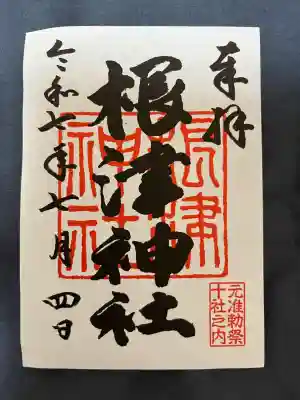 奉拝
根津神社
令和七年七月四日
根津神社
元准勅祭
十社之内